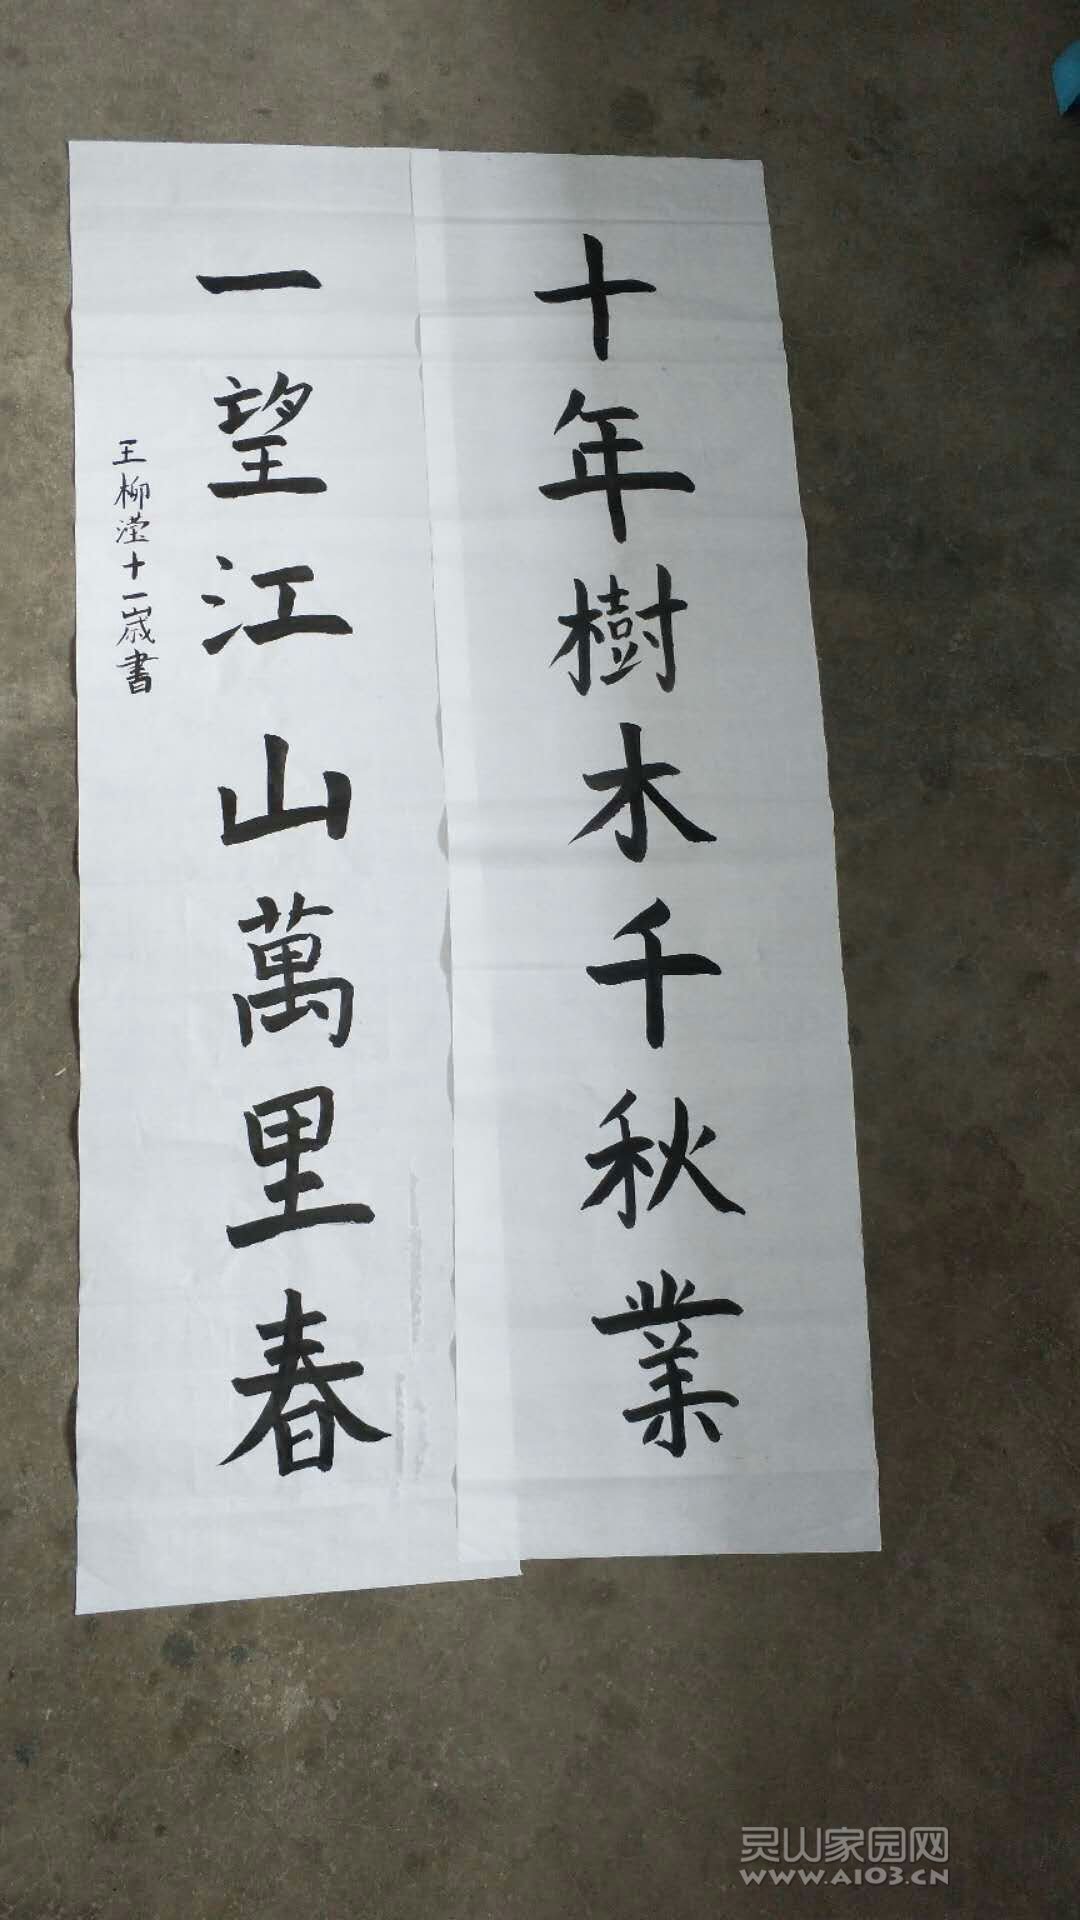 十年樹木千秋業
一望江山萬里春
王柳滢十一歲書
灵山家园网
WWW.A103.CN